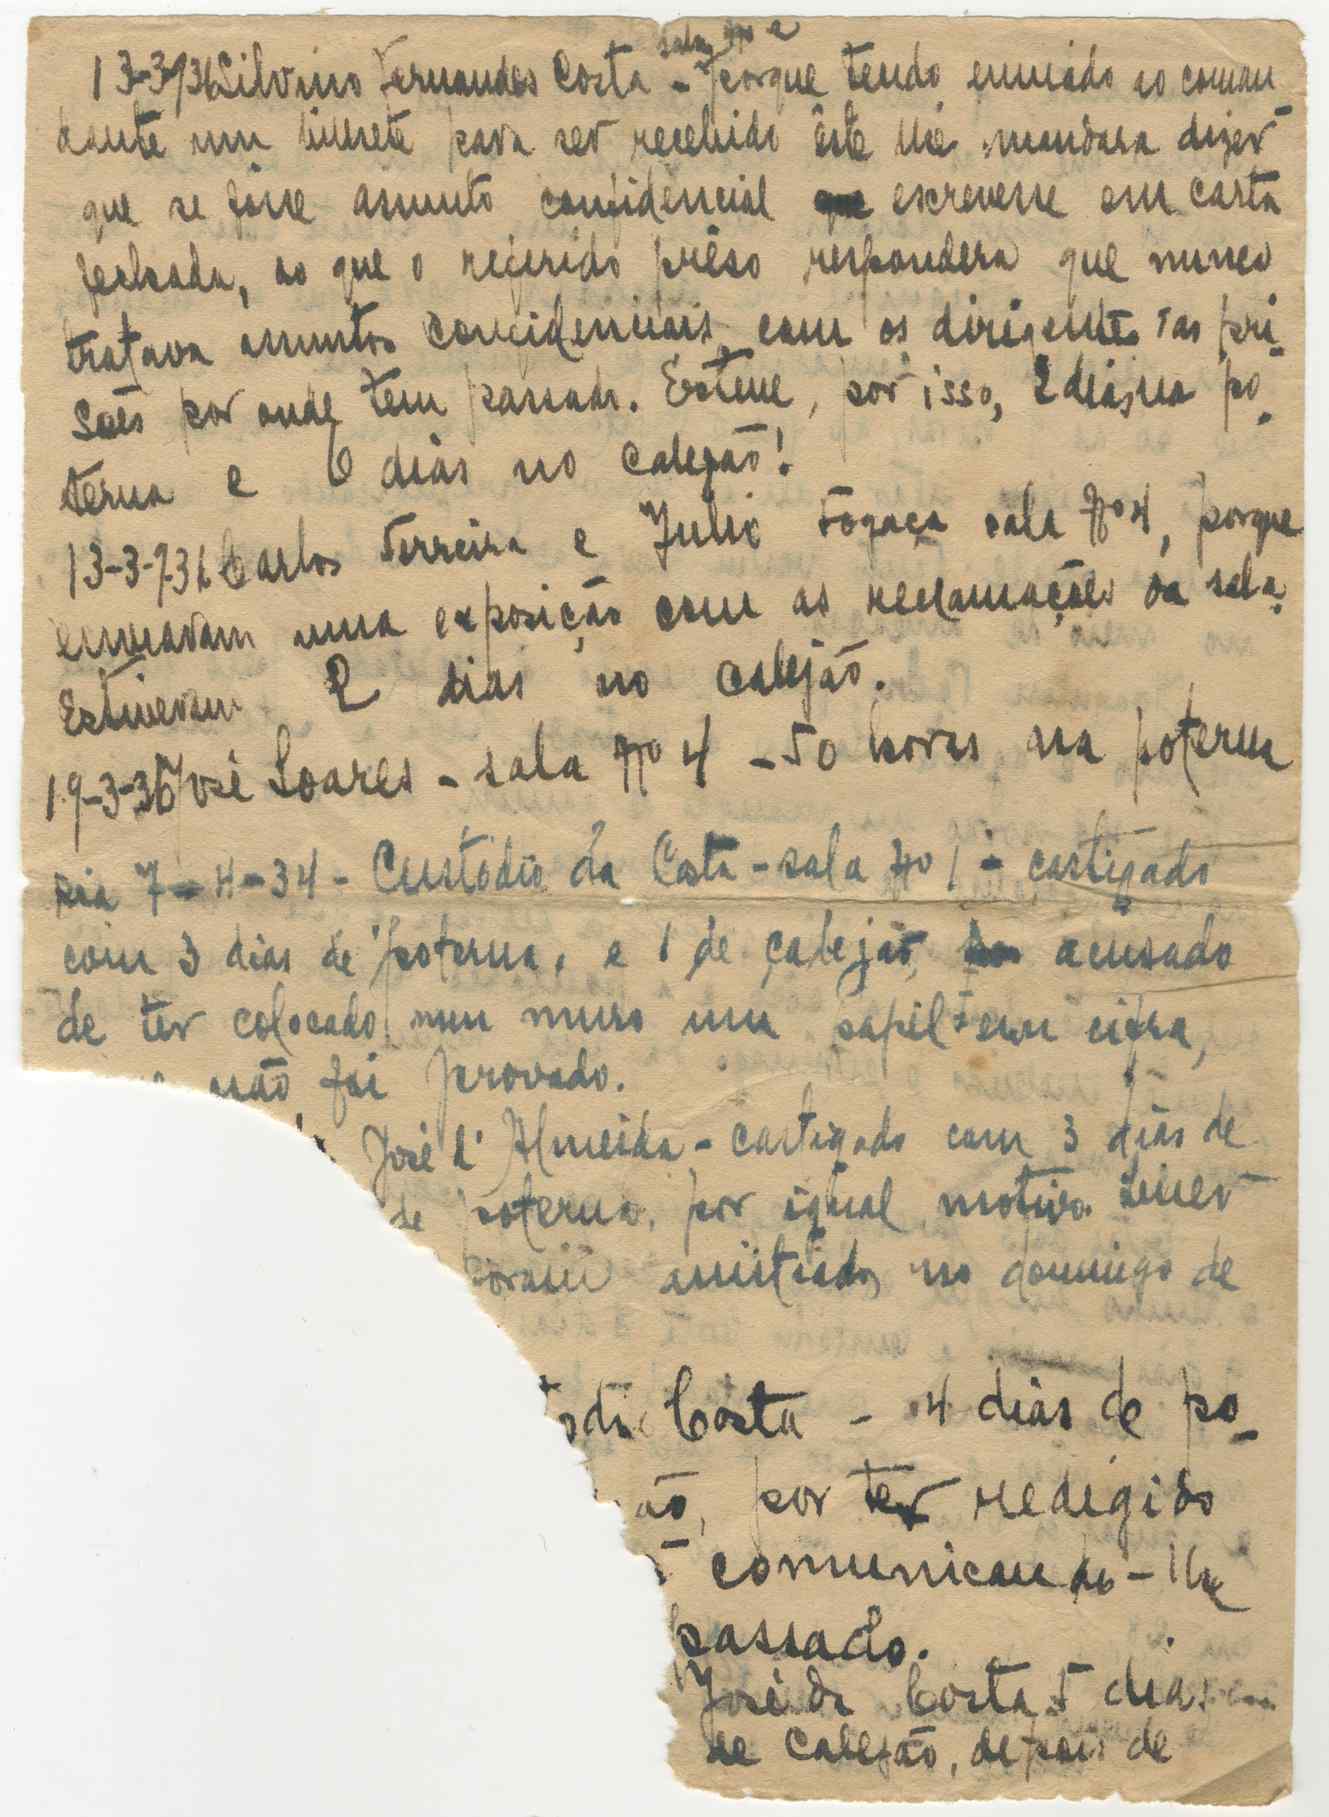 sala nº 2
13-3-936 Silvino Fernandes Costa - porque tendo enviado ao coman
dante um bilhete para ser recebido êste lhe mandara dizer
que se fôsse assunto confidencial que escrevesse em carta
fechada, ao que o referido prêso respondera que nunca
tratava assuntos confidenciais com os dirigentes das pri-
sões por onde tem passado. Esteve, por isso, 2 dias na po-
terna e 6 dias no calejão!
13-3-936 Carlos Ferreira e Julio Fogaça sala Nº 4, porque
enviavam uma exposição com as reclamações da sala.
Estiveram 2 dias no calejão.
19-3-36 José Soares - sala Nº 4 - 50 horas na poterna
Dia 7-4-34 - Custódio da Costa - sala Nº 1 - castigado
com 3 dias de poterna, e 1 de calejão, acusado
de ter colocado num muro um papel em cifra,
não foi provado.
José d'Almeida - castigado com 3 dias de
de poterna, por igual motivo.
foram amnistiados no domingo de
todio Costa - 4 dias de po-
ão, por ter redigido
comunicando-lhe
passado.
José da Costa 5 dias
de Calejão, depois de